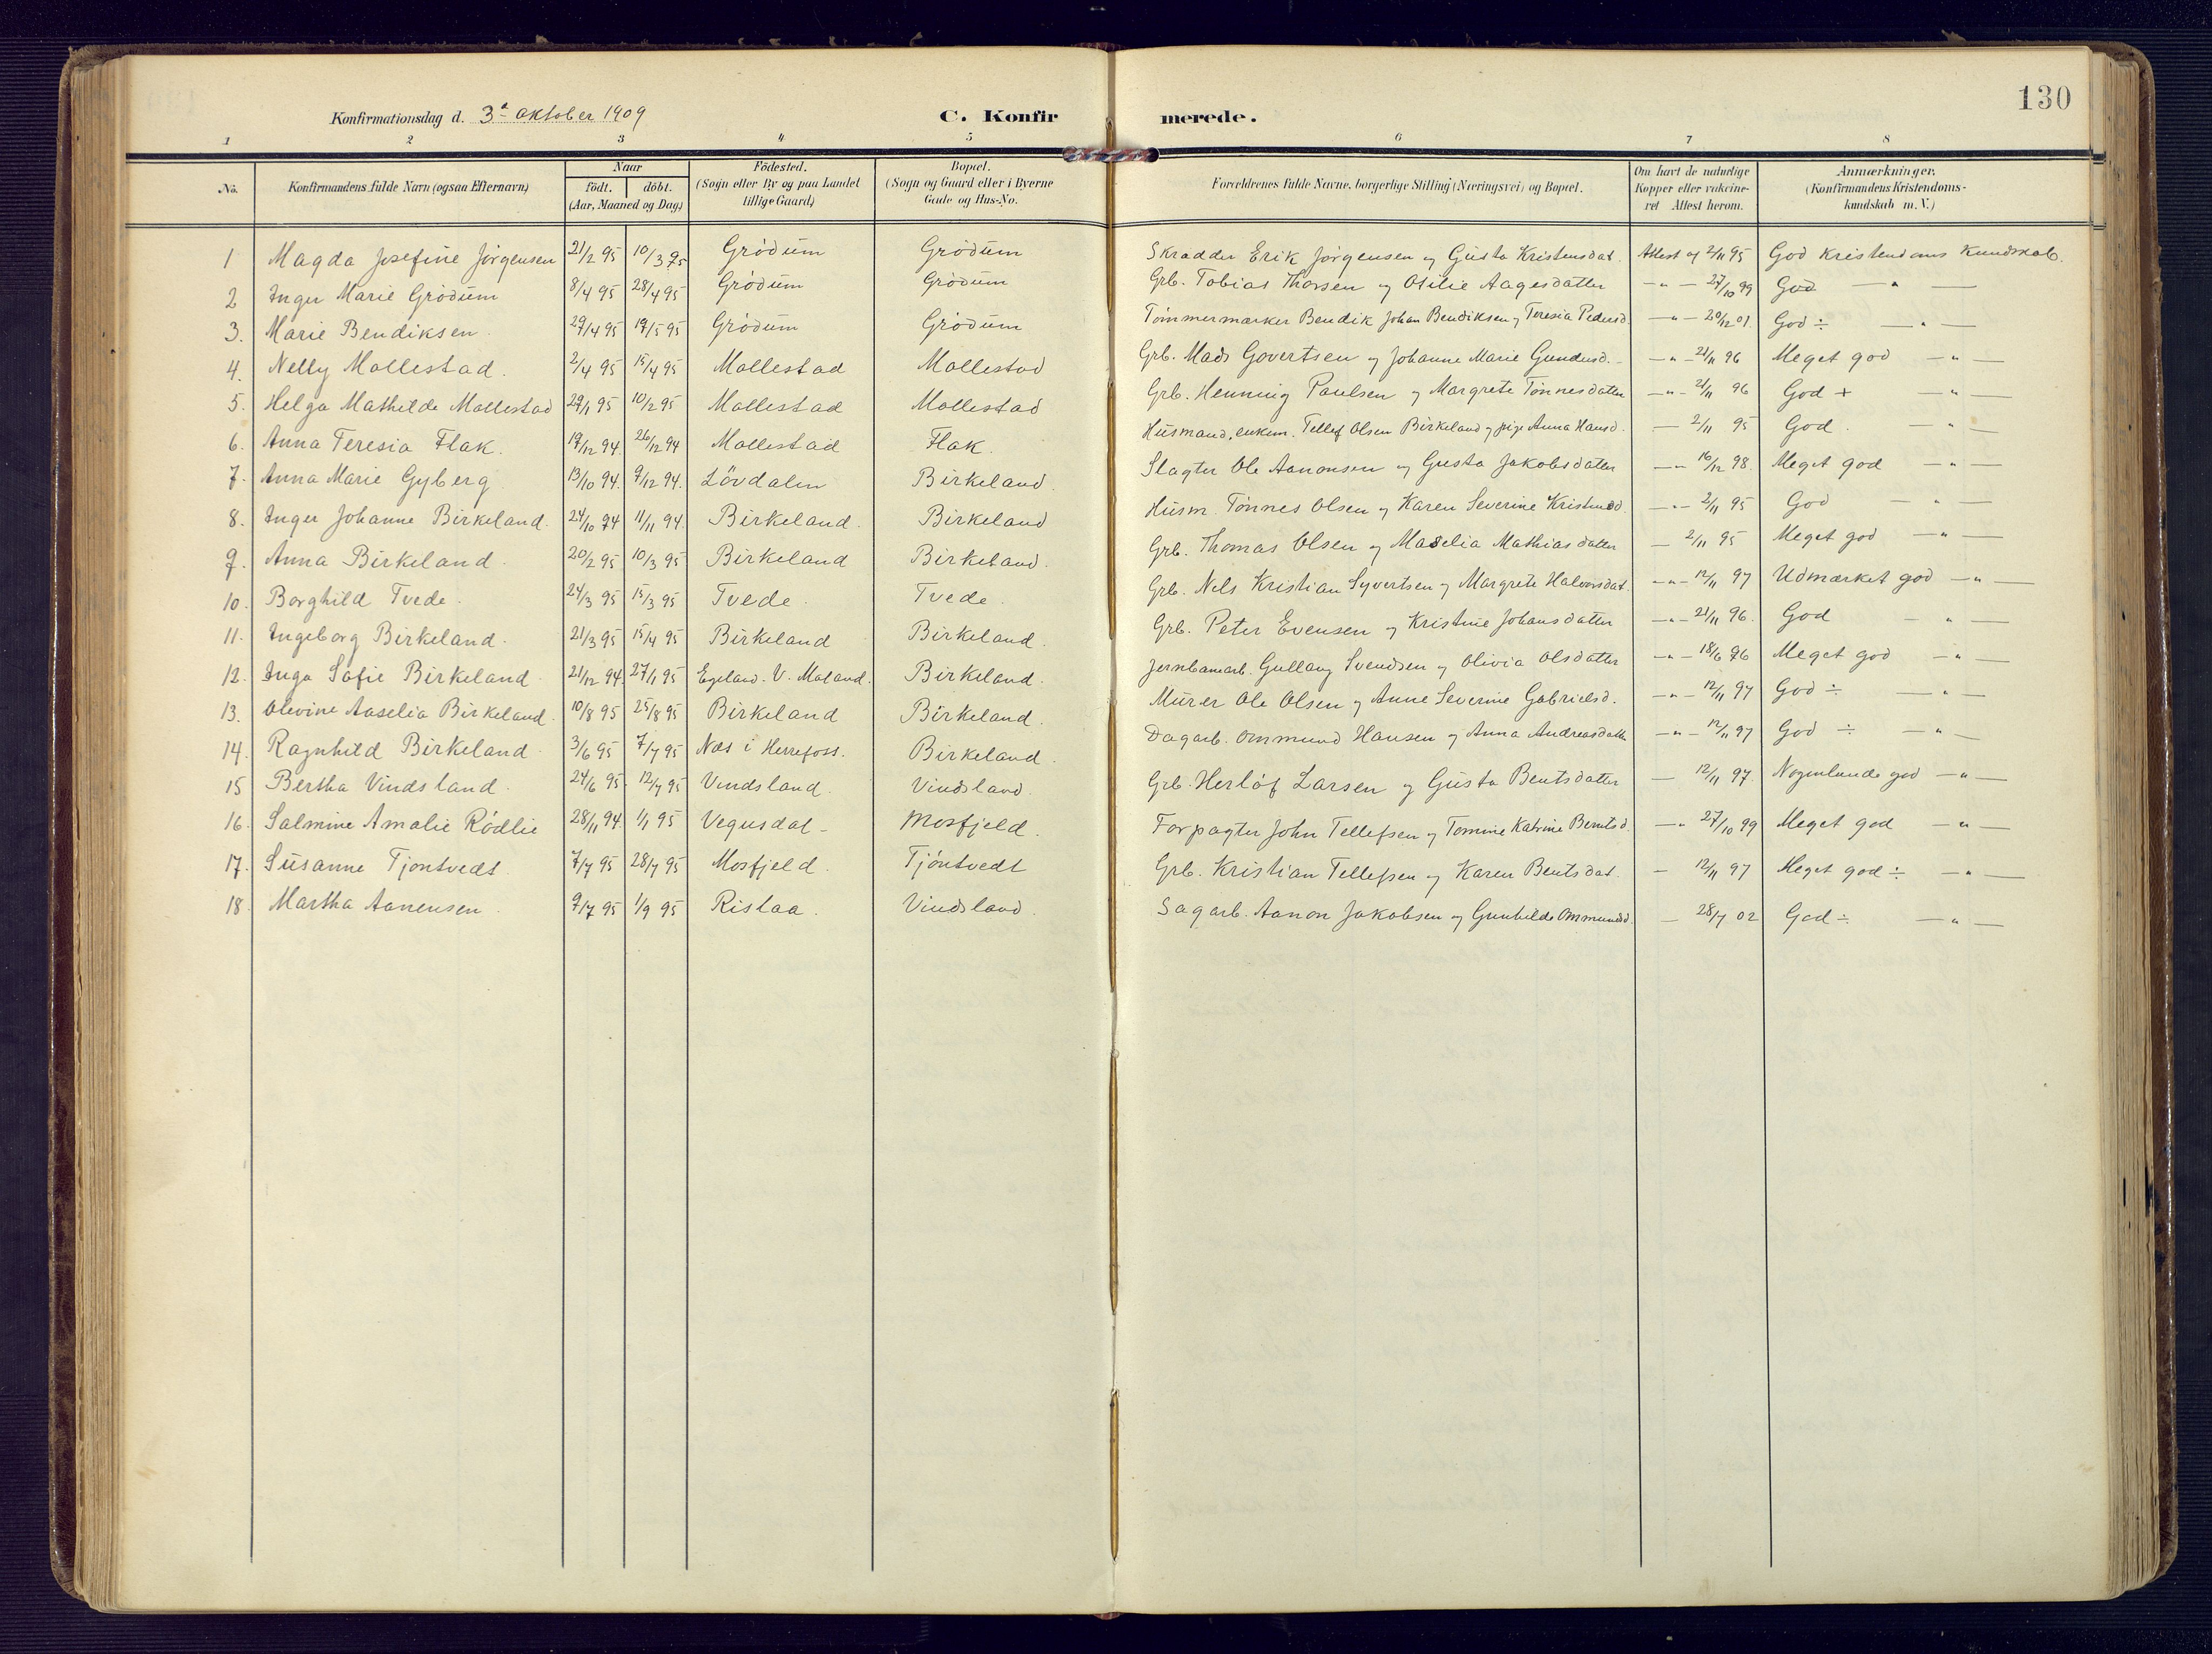 130
Konfirmationsdag d. 3d oktober 1909 C. Konfirmerede.
1 2 3 4 5 6 7 8
No. Konfirmandens fulde Navn (ogsaa Efternavn) Naar født. døbt. (Aar, Maaned og Dag) Fødested. (Sogn eller By og paa Landet tillige Gaard) Bopæl. (Sogn og Gaard eller i Byerne Gade og Hus-No. Forældrenes fulde Navne, borgerlige Stilling (Næringsvei) og Bopæl. Om havt de naturlige Kopper eller vakcineret Attest herom. Anmærkninger. (Konfirmandens Kristendomskundskab m. V.)
1 Magda Josefine Jørgensen 21/2 95 10/3 95 Grødum Grødum Skrædder Erik Jørgensen og Gusta Kristensdat. Attest af 2/11 95 God Kristendoms Kundskab.
2 Inger Marie Grødum 8/4 95 28/4 95 Grødum Grødum Grb. Tobias Thorsen og Otilie Aagesdatter —"— 27/10 99 God —"—
3. Marie Bendiksen 29/4 95 19/5 95 Grødum Grødum Tømmermærker Bendik Johan Bendiksen og Teresia Pedersd. —"— 20/12 01. God ÷ —"—
4. Nelly Mollestad. 2/4 95 15/4 95 Mollestad Mollestad Grb. Mads Govertsen og Johanne Marie Gundersd. —"— 21/11 96 Meget god —"—
5. Helga Mathilde Mollestad 29/1 95 10/2 95 Mollestad Mollestad Grb. Henning Paulsen og Margrete Tønnesdatter —"— 21/11 96 God + —"—
6. Anna Teresia Flak. 19/12 94. 26/12 94 Mollestad Flak. Husmand, enkem. Tellef Olsen Birkeland og pige Anna Hansd. — 2/11 95 God. —"—
7. Anna Marie Gyberg 13/10 94. 9/12 94. Løvdalen Birkeland. Slagter Ole Aanonsen og Gusta Jakobsdatter —"— 16/12 98. Meget god —"—
8. Inger Johanne Birkeland. 24/10 94 11/11 94. Birkeland. Birkeland Husm. Tønnes Olsen og Karen Severine Kristensd. —"— 2/11 95 God —"—
9. Anna Birkeland 20/2 95 10/3 95 Birkeland Birkeland. Grb. Thomas Olsen og Maselia Mathiasdatter — 2/11 95 Meget god —"—
10. Borghild Tvede. 24/3 95 15/3 95 Tvede. Tvede. Grb. Nils Kristian Syvertsen og Margrete Halvorsdat. —"— 12/11 97 Udmærket god —"—
11. Ingeborg Birkeland. 21/3 95 15/4 95 Birkeland Birkeland. Grb. Peter Evensen og Kristine Johansdatter —"— 21/11 96. God —"—
12. Inga Sofie Birkeland 21/12 94. 27/1 95 Egeland. V. Moland. Birkeland. Jernbanearb. Gullaug Svendsen og Olivia Olsdatter —"— 18/6 96 Meget god —"—
13. Olevine Aaselia Birkeland. 10/8 95 25/8 95 Birkeland Birkeland. Murer Ole Olsen og Anne Severine Gabrielsd. —"— 12/11 97 God ÷ —"—
14. Ragnhild Birkeland 3/6 95 7/7 95 Næs i Herrefoss. Birkeland. Dagarb. Ommund Hansen og Anna Andreasdatter —"— 12/11 97 God ÷ —"—
15 Bertha Vindsland. 24/6 95. 12/7 95 Vindsland. Vindsland. Grb. Herløf Larsen og Gusta Bentsdatter — 12/11 97. Nogenlunde god —"—
16. Salmine Amalie Rødlie 28/11 94. 1/1 95 Vegusdal - Mosfjeld. Forpagter John Tellefsen og Tomine Katrine Berntsd. —" 27/10 99 Meget god —"—
17. Susanne Tjøntvedt. 7/7 95 28/7 95 Mosfjeld. Tjøntvedt Grb. Kristian Tellefsen og Karen Bentsdat. — 12/11 97 Meget god ÷ —"—
18. Martha Aanensen. 9/7 95 1/9 95 Rislaa. Vindsland. Sagarb. Aanon Jakobsen og Gunhilde Ommundsd. — 28/7 02 God ÷ —"—